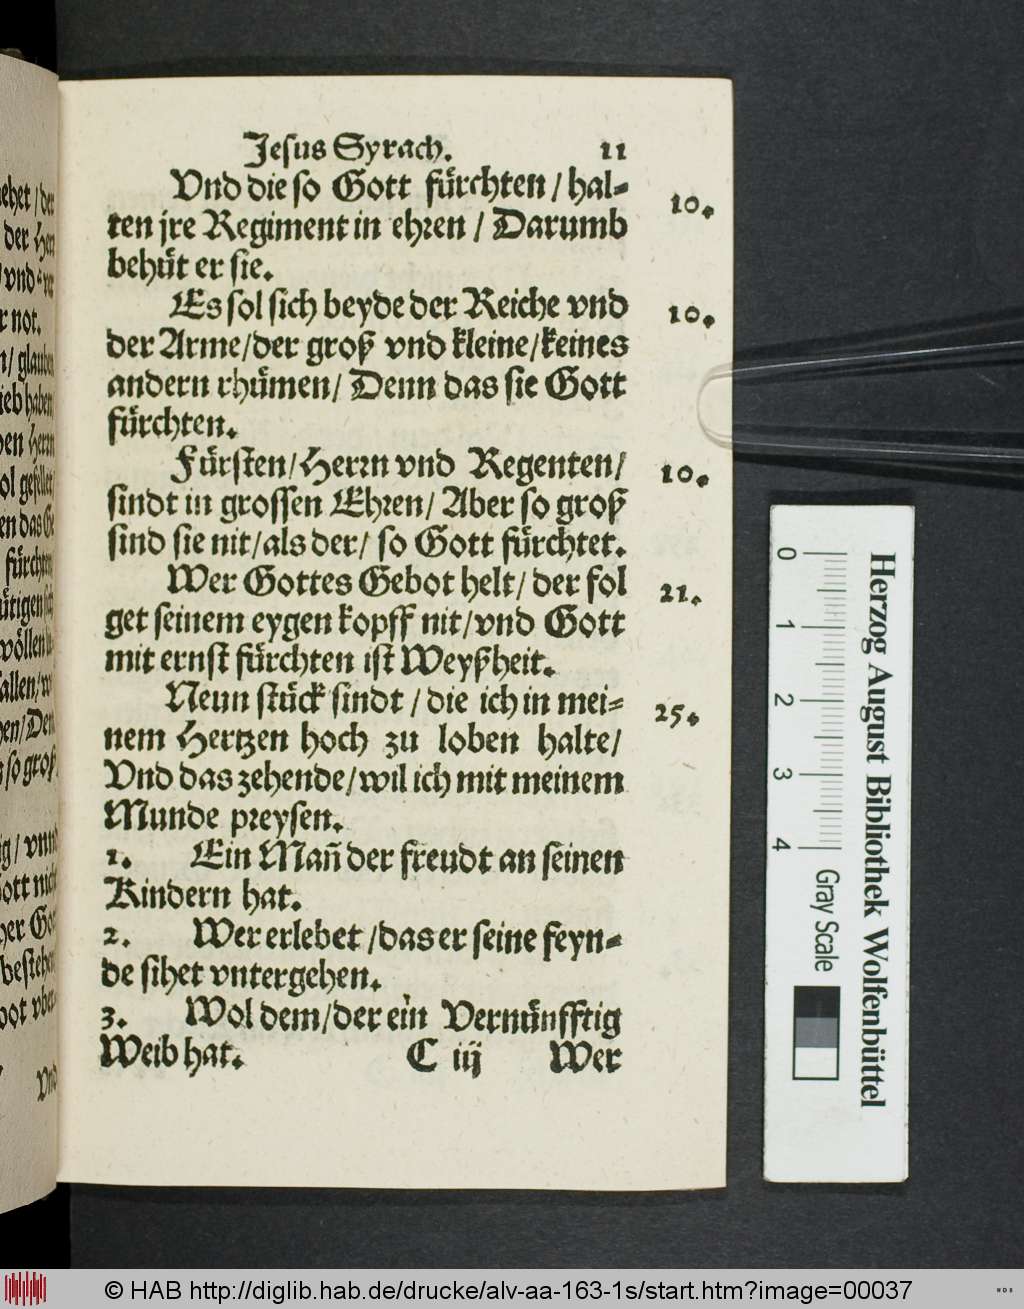 Jesus Syrach. 11
Vnd die so Gott fürchten / hal-
ten jre Regiment in ehren / Darumb
behüt er sie.
10.
Es sol sich beyde der Reiche vnd
der Arme/der groß vnd kleine/keines
andern rhümen/ Denn das sie Gott
fürchten.
10.
Fürsten/Herrn vnd Regenten/
sindt in grossen Ehren/ Aber so groß
sind sie nit/als der/ so Gott fürchtet.
10.
Wer Gottes Gebot helt/ der fol
get seinem eygen kopff nit/vnd Gott
mit ernst fürchten ist Weyßheit.
21.
Neun stück sindt / die ich in mei-
nem Hertzen hoch zu loben halte/
Vnd das zehende/wil ich mit meinem
Munde preysen.
25.
1. Ein Mañ der freudt an seinen
Kindern hat.
2. Wer erlebet /das er seine feyn-
de sihet vntergehen.
3. Wol dem/der ein Vernünfftig
Weib hat. C iij Wer
ehet / der
der Herr
not.
glauben
lieb haben
Herrn
sol gefellet/
fürchten
wöllen
fallen/
Den
so groß
vnnd
Gott nicht
bestehen
Vnd
0 1 2 3 4
Gray Scale
Herzog August Bibliothek Wolfenbüttel
© HAB http://diglib.hab.de/drucke/alv-aa-163-1s/start.htm?image=00037